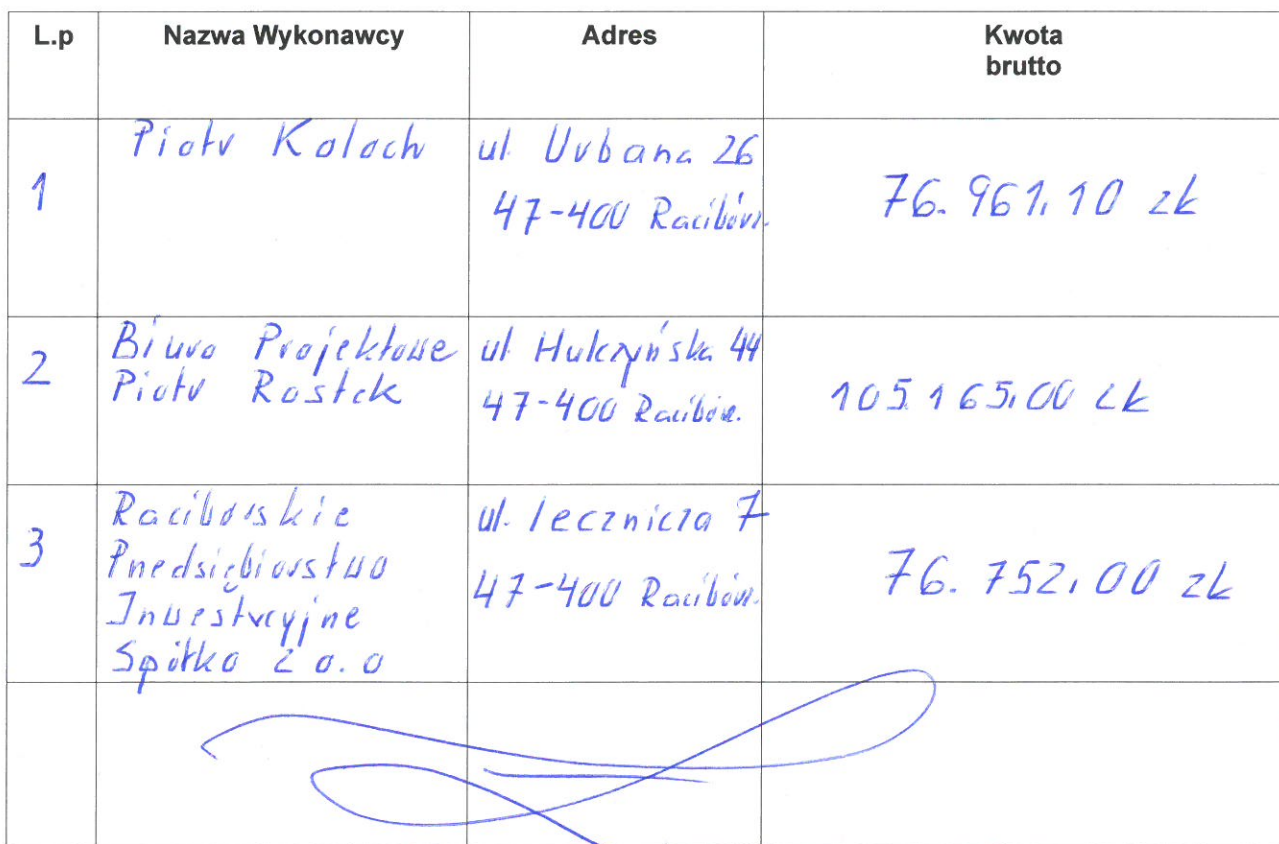 L.p Nazwa Wykonawcy Adres Kwota
brutto
1
Piotr Kaloch
ul Urbana 26
47-400 Racibórz.
76.961,10 zł
2
Biuro Projektowe
Piotr Rostek
ul Hulczyńska 44
47-400 Racibórz.
105.165,00 zł
3
Raciborskie
Przedsiębiorstwo
Inwestycyjne
Spółka z o.o
ul. lecznicza 7
47-400 Racibórz.
76.752,00 zł